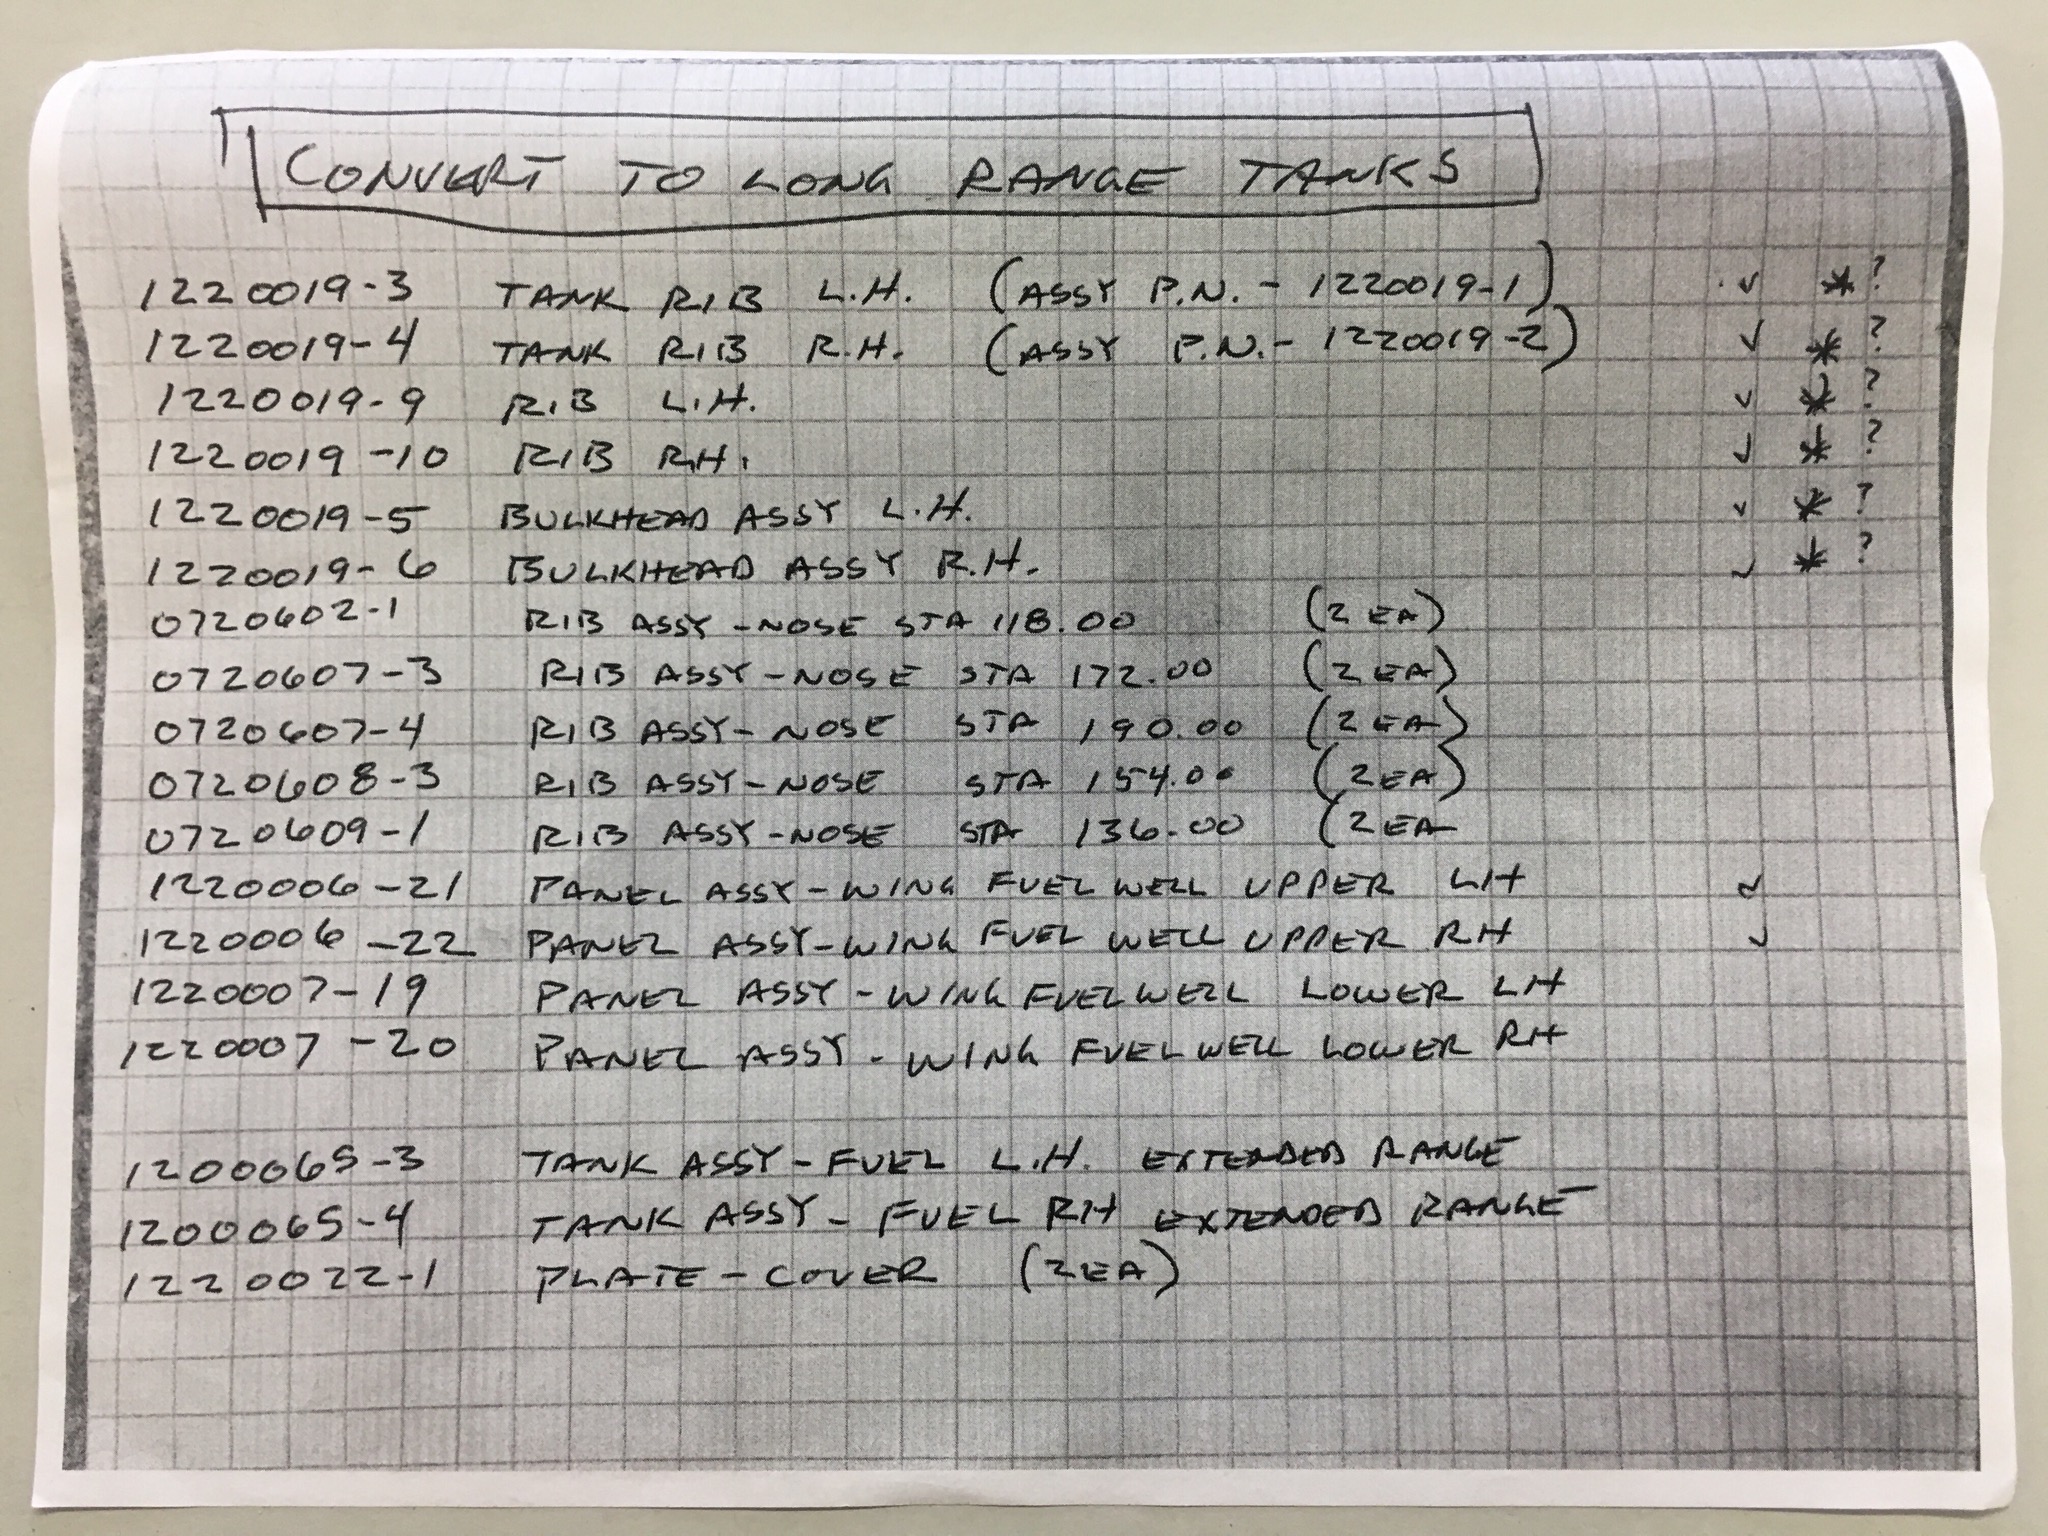 CONVERT TO LONG RANGE TANKS
1220019-3 TANK RIB L.H. (ASSY P.N. - 1220019-1) ✓ * ?
1220019-4 TANK RIB R.H. (ASSY P.N. - 1220019-2) ✓ * ?
1220019-9 RIB L.H. ✓ * ?
1220019-10 RIB R.H. ✓ * ?
1220019-5 BULKHEAD ASSY L.H. ✓ * ?
1220019-6 BULKHEAD ASSY R.H. ✓ * ?
0720602-1 RIB ASSY - NOSE STA 118.00 (2 EA)
0720607-3 RIB ASSY - NOSE STA 172.00 (2 EA)
0720607-4 RIB ASSY - NOSE STA 190.00 (2 EA)
0720608-3 RIB ASSY - NOSE STA 154.00 (2 EA)
0720609-1 RIB ASSY - NOSE STA 136.00 (2 EA
1220006-21 PANEL ASSY - WING FUEL WELL UPPER LH ✓
1220006-22 PANEL ASSY - WING FUEL WELL UPPER RH ✓
1220007-19 PANEL ASSY - WING FUEL WELL LOWER LH
1220007-20 PANEL ASSY - WING FUEL WELL LOWER RH
1200065-3 TANK ASSY - FUEL L.H. EXTENDED RANGE
1200065-4 TANK ASSY - FUEL RH EXTENDED RANGE
1220022-1 PLATE - COVER (2 EA)